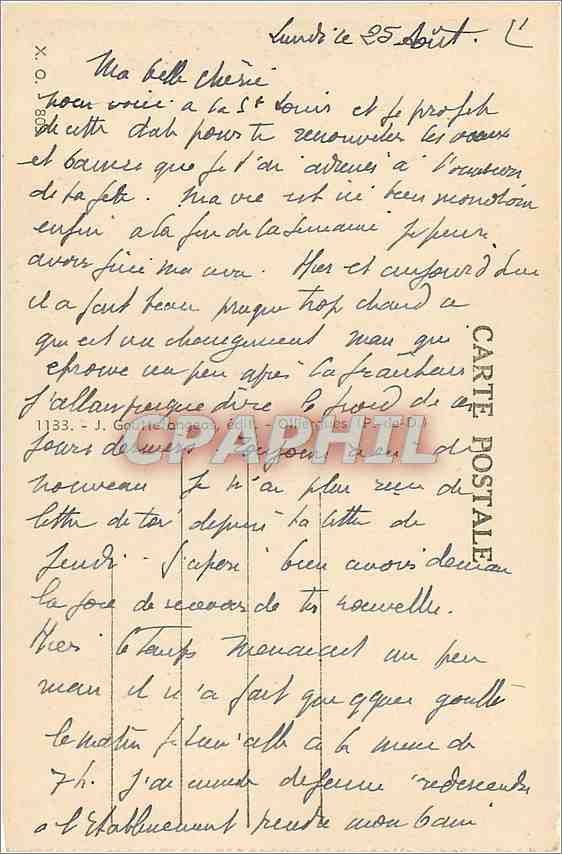 Lundi le 25 Août.
Ma belle chérie
nous voici a la St Louis et je profite
de cette date pour te renouveler les vœux
et baisers que je t'ai adressés à l'occasion
de ta fête. Ma vie est ici bien monotone
enfin a la fin de la semaine je pense
avoir fini ma cure. Hier et aujourd'hui
il a fait beau presque trop chaud ce
qui est un changement mais qui
éprouve un peu après la fraîcheur
j'allais presque dire le froid de ces
jours derniers toujours rien de
nouveau Je n'ai plus reçu de
lettre de toi depuis ta lettre de
Jeudi - J'espère bien avoir demain
la joie de recevoir de tes nouvelles.
Hier le temps menaçait un peu
mais il n'a fait que qques gouttes
le matin je suis allé a la messe de
7h. J'ai ensuite redescendre
a l'Etablissement prendre mon bain
X. O. 808
1133. - J. Gouttefangeas, édit. - Olliergues (P.-de-D.)
CARTE POSTALE
CPAPHIL